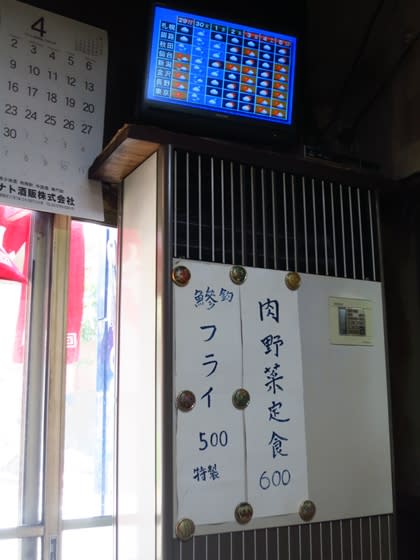 4
2 3 4 5 6
9 10 11 12 13
16 17 18 19 20
23 24 25 26 27
30
ナト酒販株式会社
29 30 1 2 3 4 5
札幌
釧路
秋田
仙台
新潟
金沢
長野
東京
肉野菜定食
600
鰺釣
フライ
500
特製